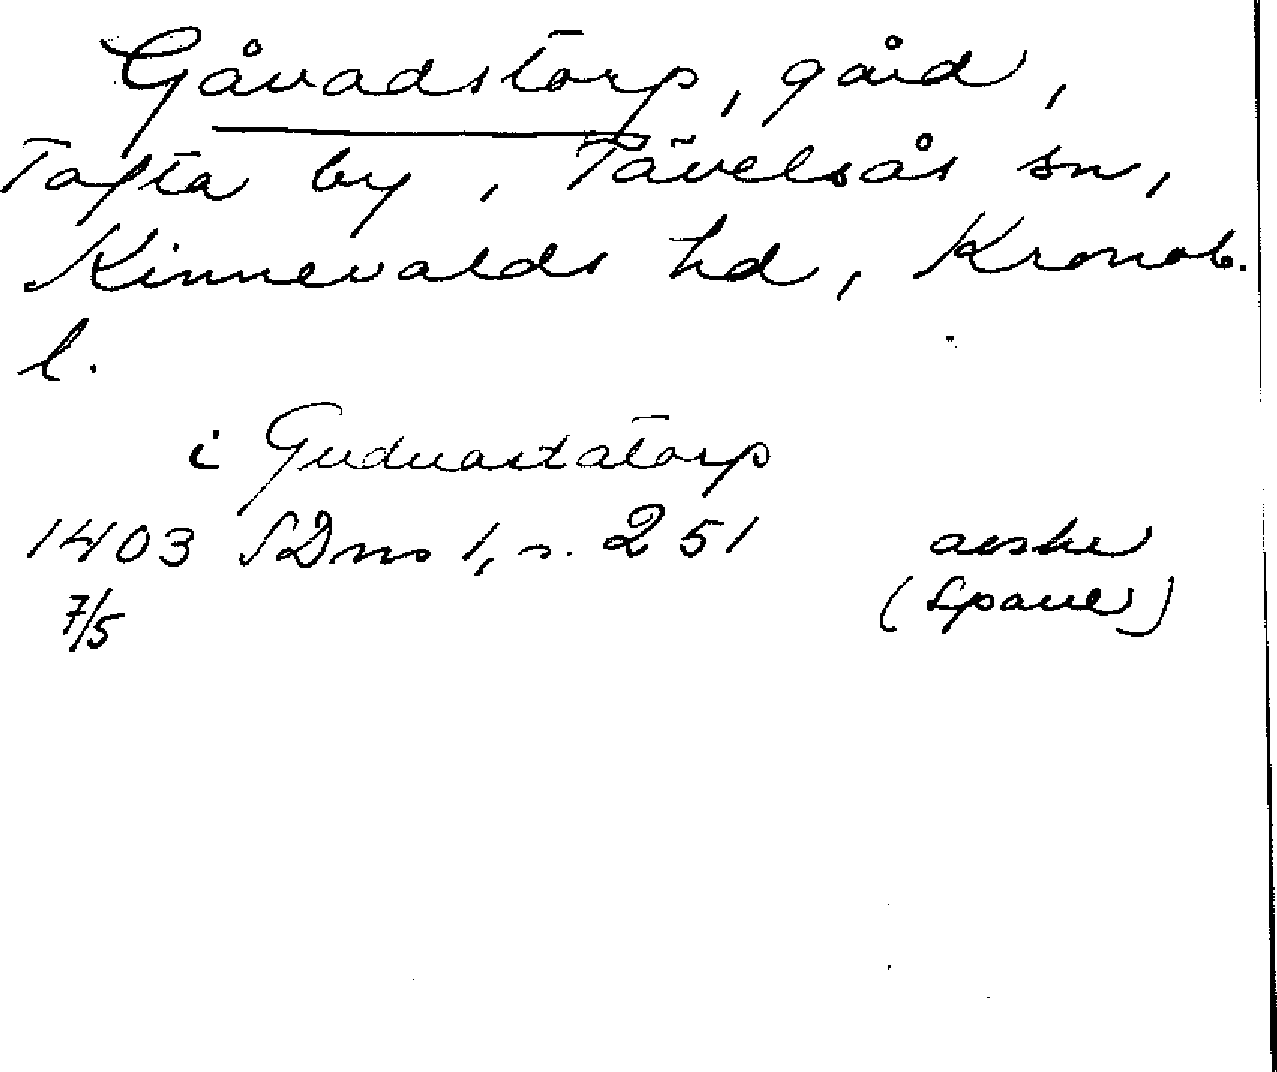 Gåvadstorp, gård,
Tofta by, Tävelsås sn,
Kinnevalds hd, Kronob.
l.
i Guduastatorp
1403 SDns 1, s. 251 avskr
7/5 (Spaue)